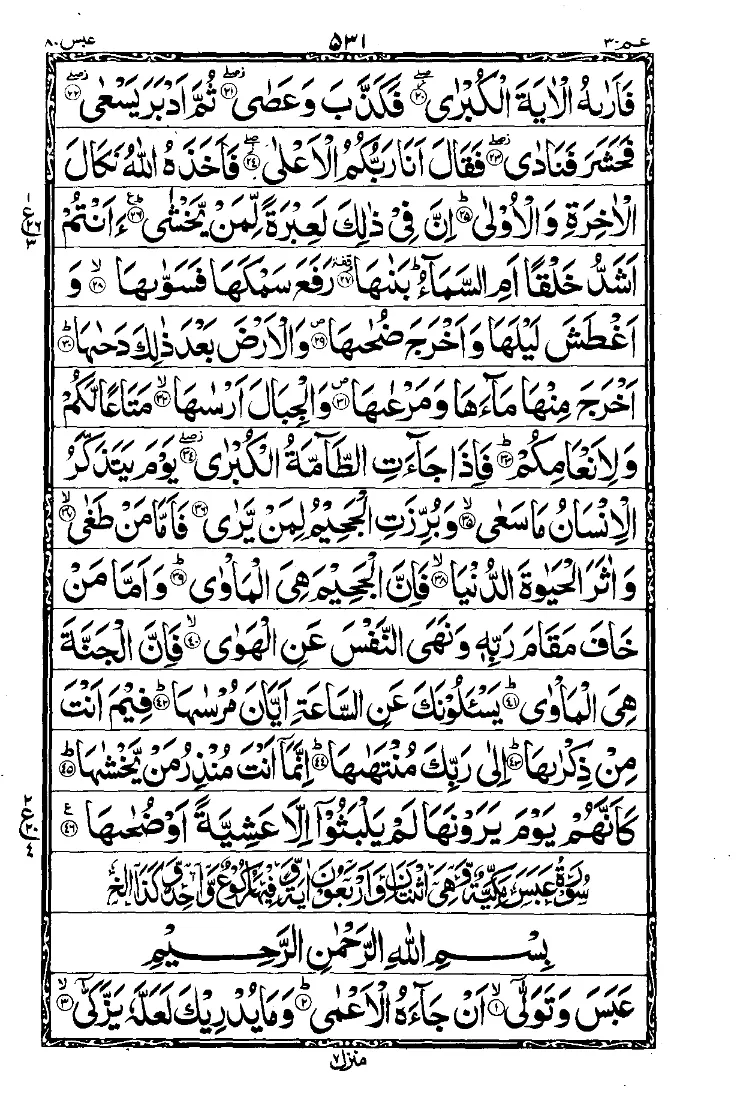 عبس ٨٠ ٥٣١ عم ٣٠
فَاَرٰىهُ الْاٰيَةَ الْكُبْرٰى ۖ ﴿٢٠﴾ فَكَذَّبَ وَعَصٰى ۖ ﴿٢١﴾ ثُمَّ اَدْبَرَ يَسْعٰى ۖ ﴿٢٢﴾
فَحَشَرَ فَنَادٰى ۖ ﴿٢٣﴾ فَقَالَ اَنَا رَبُّكُمُ الْاَعْلٰى ۖ ﴿٢٤﴾ فَاَخَذَهُ اللّٰهُ نَكَالَ
الْاٰخِرَةِ وَالْاُوْلٰى ؕ ﴿٢٥﴾ اِنَّ فِيْ ذٰلِكَ لَعِبْرَةً لِّمَنْ يَّخْشٰى ؕ ﴿٢٦﴾ ءَاَنْتُمْ
اَشَدُّ خَلْقًا اَمِ السَّمَآءُ ؕ بَنٰىهَا ﴿٢٧﴾ رَفَعَ سَمْكَهَا فَسَوّٰىهَا ۙ ﴿٢٨﴾ وَ
اَغْطَشَ لَيْلَهَا وَاَخْرَجَ ضُحٰىهَا ۪ ﴿٢٩﴾ وَالْاَرْضَ بَعْدَ ذٰلِكَ دَحٰىهَا ؕ ﴿٣٠﴾
اَخْرَجَ مِنْهَا مَآءَهَا وَمَرْعٰىهَا ۪ ﴿٣١﴾ وَالْجِبَالَ اَرْسٰىهَا ۙ ﴿٣٢﴾ مَتَاعًا لَّكُمْ
وَلِاَنْعَامِكُمْ ؕ ﴿٣٣﴾ فَاِذَا جَآءَتِ الطَّآمَّةُ الْكُبْرٰى ۖ ﴿٣٤﴾ يَوْمَ يَتَذَكَّرُ
الْاِنْسَانُ مَا سَعٰى ۙ ﴿٣٥﴾ وَبُرِّزَتِ الْجَحِيْمُ لِمَنْ يَّرٰى ﴿٣٦﴾ فَاَمَّا مَنْ طَغٰى ۙ ﴿٣٧﴾
وَاٰثَرَ الْحَيٰوةَ الدُّنْيَا ۙ ﴿٣٨﴾ فَاِنَّ الْجَحِيْمَ هِيَ الْمَاْوٰى ؕ ﴿٣٩﴾ وَاَمَّا مَنْ
خَافَ مَقَامَ رَبِّهٖ وَنَهَى النَّفْسَ عَنِ الْهَوٰى ۙ ﴿٤٠﴾ فَاِنَّ الْجَنَّةَ
هِيَ الْمَاْوٰى ؕ ﴿٤١﴾ يَسْئَلُوْنَكَ عَنِ السَّاعَةِ اَيَّانَ مُرْسٰىهَا ؕ ﴿٤٢﴾ فِيْمَ اَنْتَ
مِنْ ذِكْرٰىهَا ؕ ﴿٤٣﴾ اِلٰى رَبِّكَ مُنْتَهٰىهَا ؕ ﴿٤٤﴾ اِنَّمَآ اَنْتَ مُنْذِرُ مَنْ يَّخْشٰىهَا ؕ ﴿٤٥﴾
كَاَنَّهُمْ يَوْمَ يَرَوْنَهَا لَمْ يَلْبَثُوْٓا اِلَّا عَشِيَّةً اَوْ ضُحٰىهَا ﴿٤٦﴾
سُوْرَةُ عَبَسَ مَكِّيَّةٌ وَّهِيَ اثْنَتَانِ وَاَرْبَعُوْنَ اٰيَةً وَّفِيْهَا رُكُوْعٌ وَّاحِدٌ
بِسْمِ اللّٰهِ الرَّحْمٰنِ الرَّحِيْمِ
عَبَسَ وَتَوَلّٰٓى ۙ ﴿١﴾ اَنْ جَآءَهُ الْاَعْمٰى ؕ ﴿٢﴾ وَمَا يُدْرِيْكَ لَعَلَّهٗ يَزَّكّٰٓى ۙ ﴿٣﴾
منزل ٧